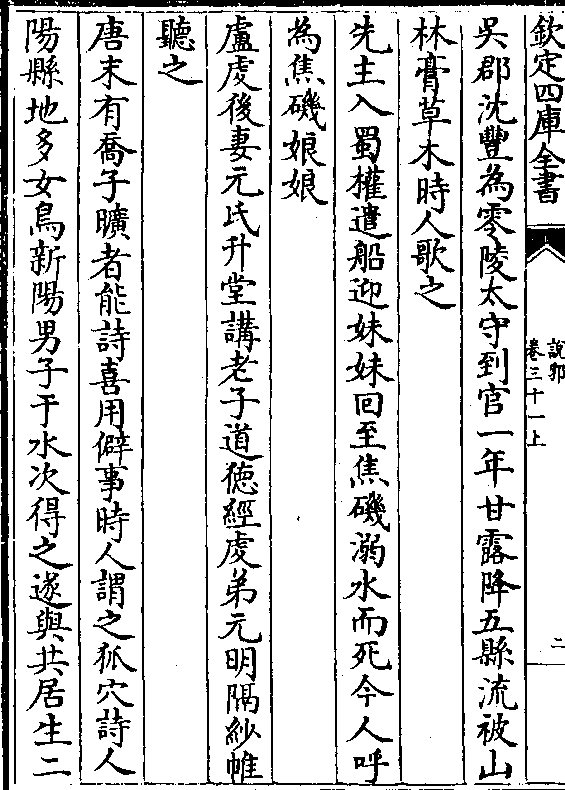 欽定四庫全書
說郛
卷三十一上
二
吳郡沈豐為零陵太守到官一年甘露降五縣流被山
林膏草木時人歌之
先主入蜀權遣船迎妹妹回至焦磯溺水而死今人呼
為焦磯娘娘
盧虔後妻元氏升堂講老子道徳經虔弟元明隔紗帷
聽之
唐末有喬子曠者能詩喜用僻事時人謂之狐穴詩人
陽縣地多女鳥新陽男子于水次得之遂與共居生二